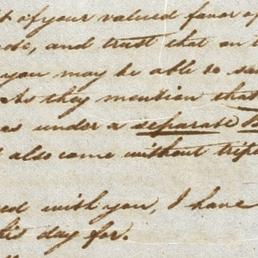 t of your valued favor of
and trust that on t
you may be able to se
As they mention that
as under a separate
also come without
ed with you, I have
his day for.